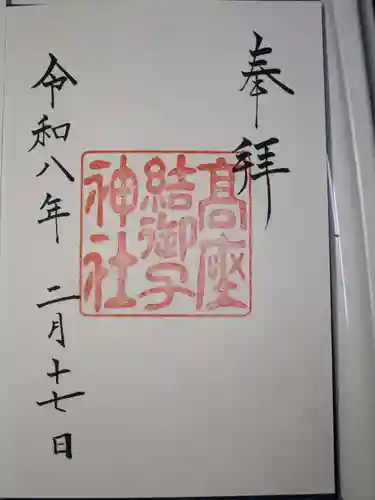 奉拝
高座
結御子
神社
令和八年 二月十七日